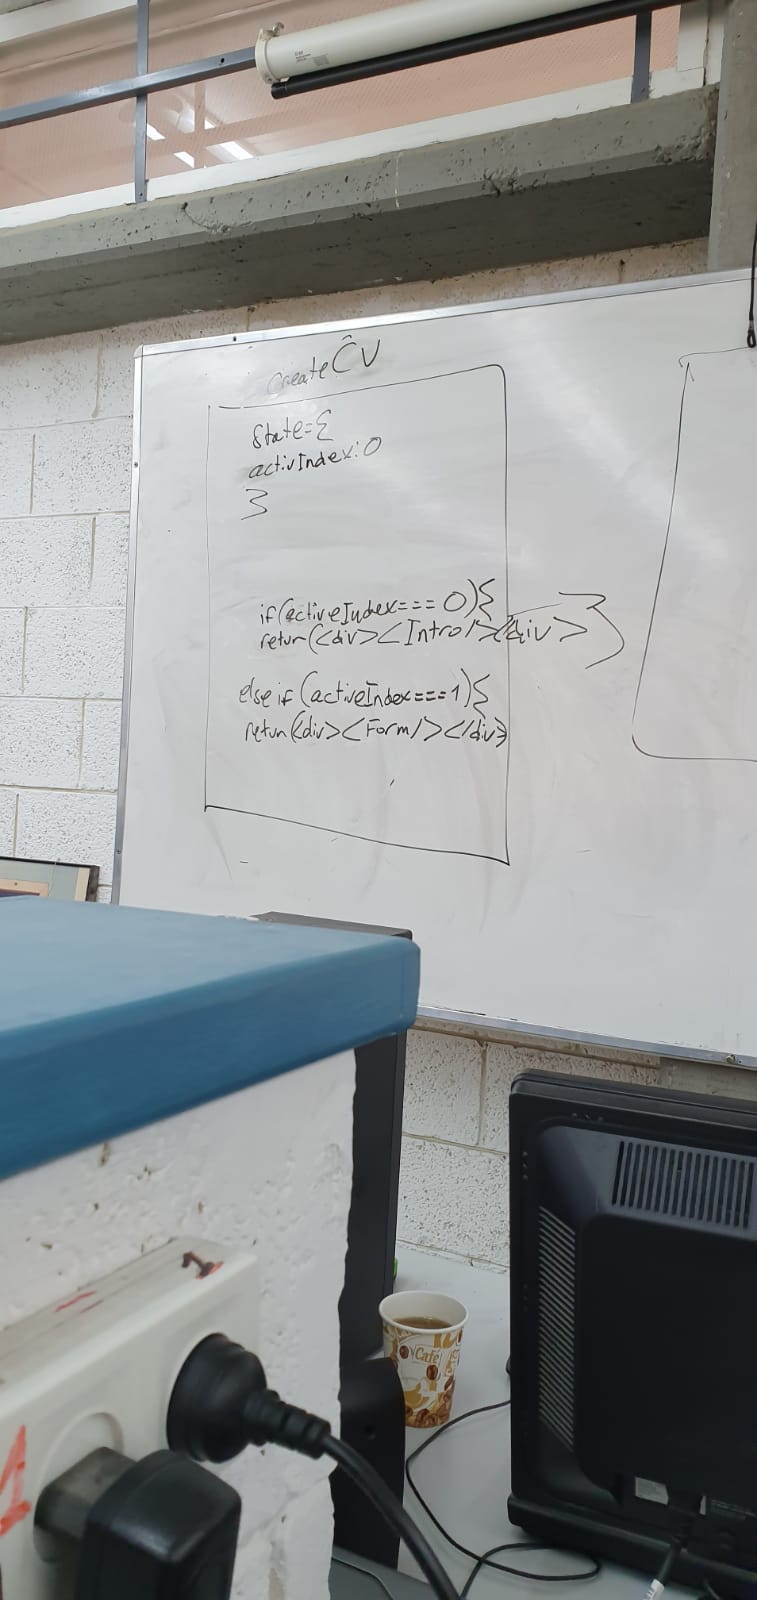 createCV
State={
activIndex:0
}
if(activeIndex===0){
return(<div><Intro/></div>}
else if (activeIndex===1){
return(<div><Form/></div>
Café
1